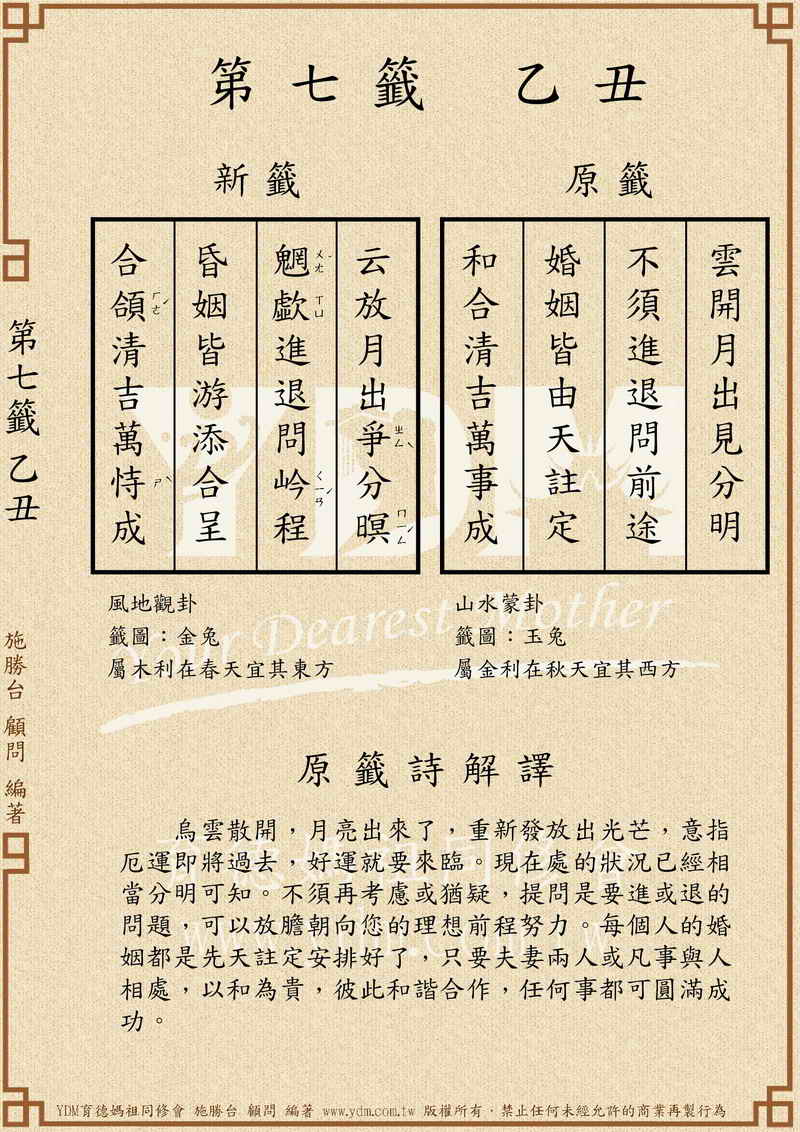 第七籤 乙丑
原籤
雲開月出見分明
不須進退問前途
婚姻皆由天註定
和合清吉萬事成
山水蒙卦
籤圖：玉兔
屬金利在秋天宜其西方
新籤
云放月出爭分暝
ㄓㄥˋ
ㄇㄧㄥˊ
魍歔進退問岒程
ㄨㄤˇ
ㄒㄩ
ㄑㄧㄢˊ
昏姻皆游添合呈
合頜清吉萬恃成
ㄏㄜˊ
ㄕˋ
風地觀卦
籤圖：金兔
屬木利在春天宜其東方
原籤詩解譯
烏雲散開，月亮出來了，重新發放出光芒，意指
厄運即將過去，好運就要來臨。現在處的狀況已經相
當分明可知。不須再考慮或猶疑，提問是要進或退的
問題，可以放膽朝向您的理想前程努力。每個人的婚
姻都是先天註定安排好了，只要夫妻兩人或凡事與人
相處，以和為貴，彼此和諧合作，任何事都可圓滿成
功。
第七籤 乙丑
施勝台 顧問 編著
YDM
Your Dearest Mother
YDM育德媽祖同修會 施勝台 顧問 編著 www.ydm.com.tw 版權所有．禁止任何未經允許的商業再製行為